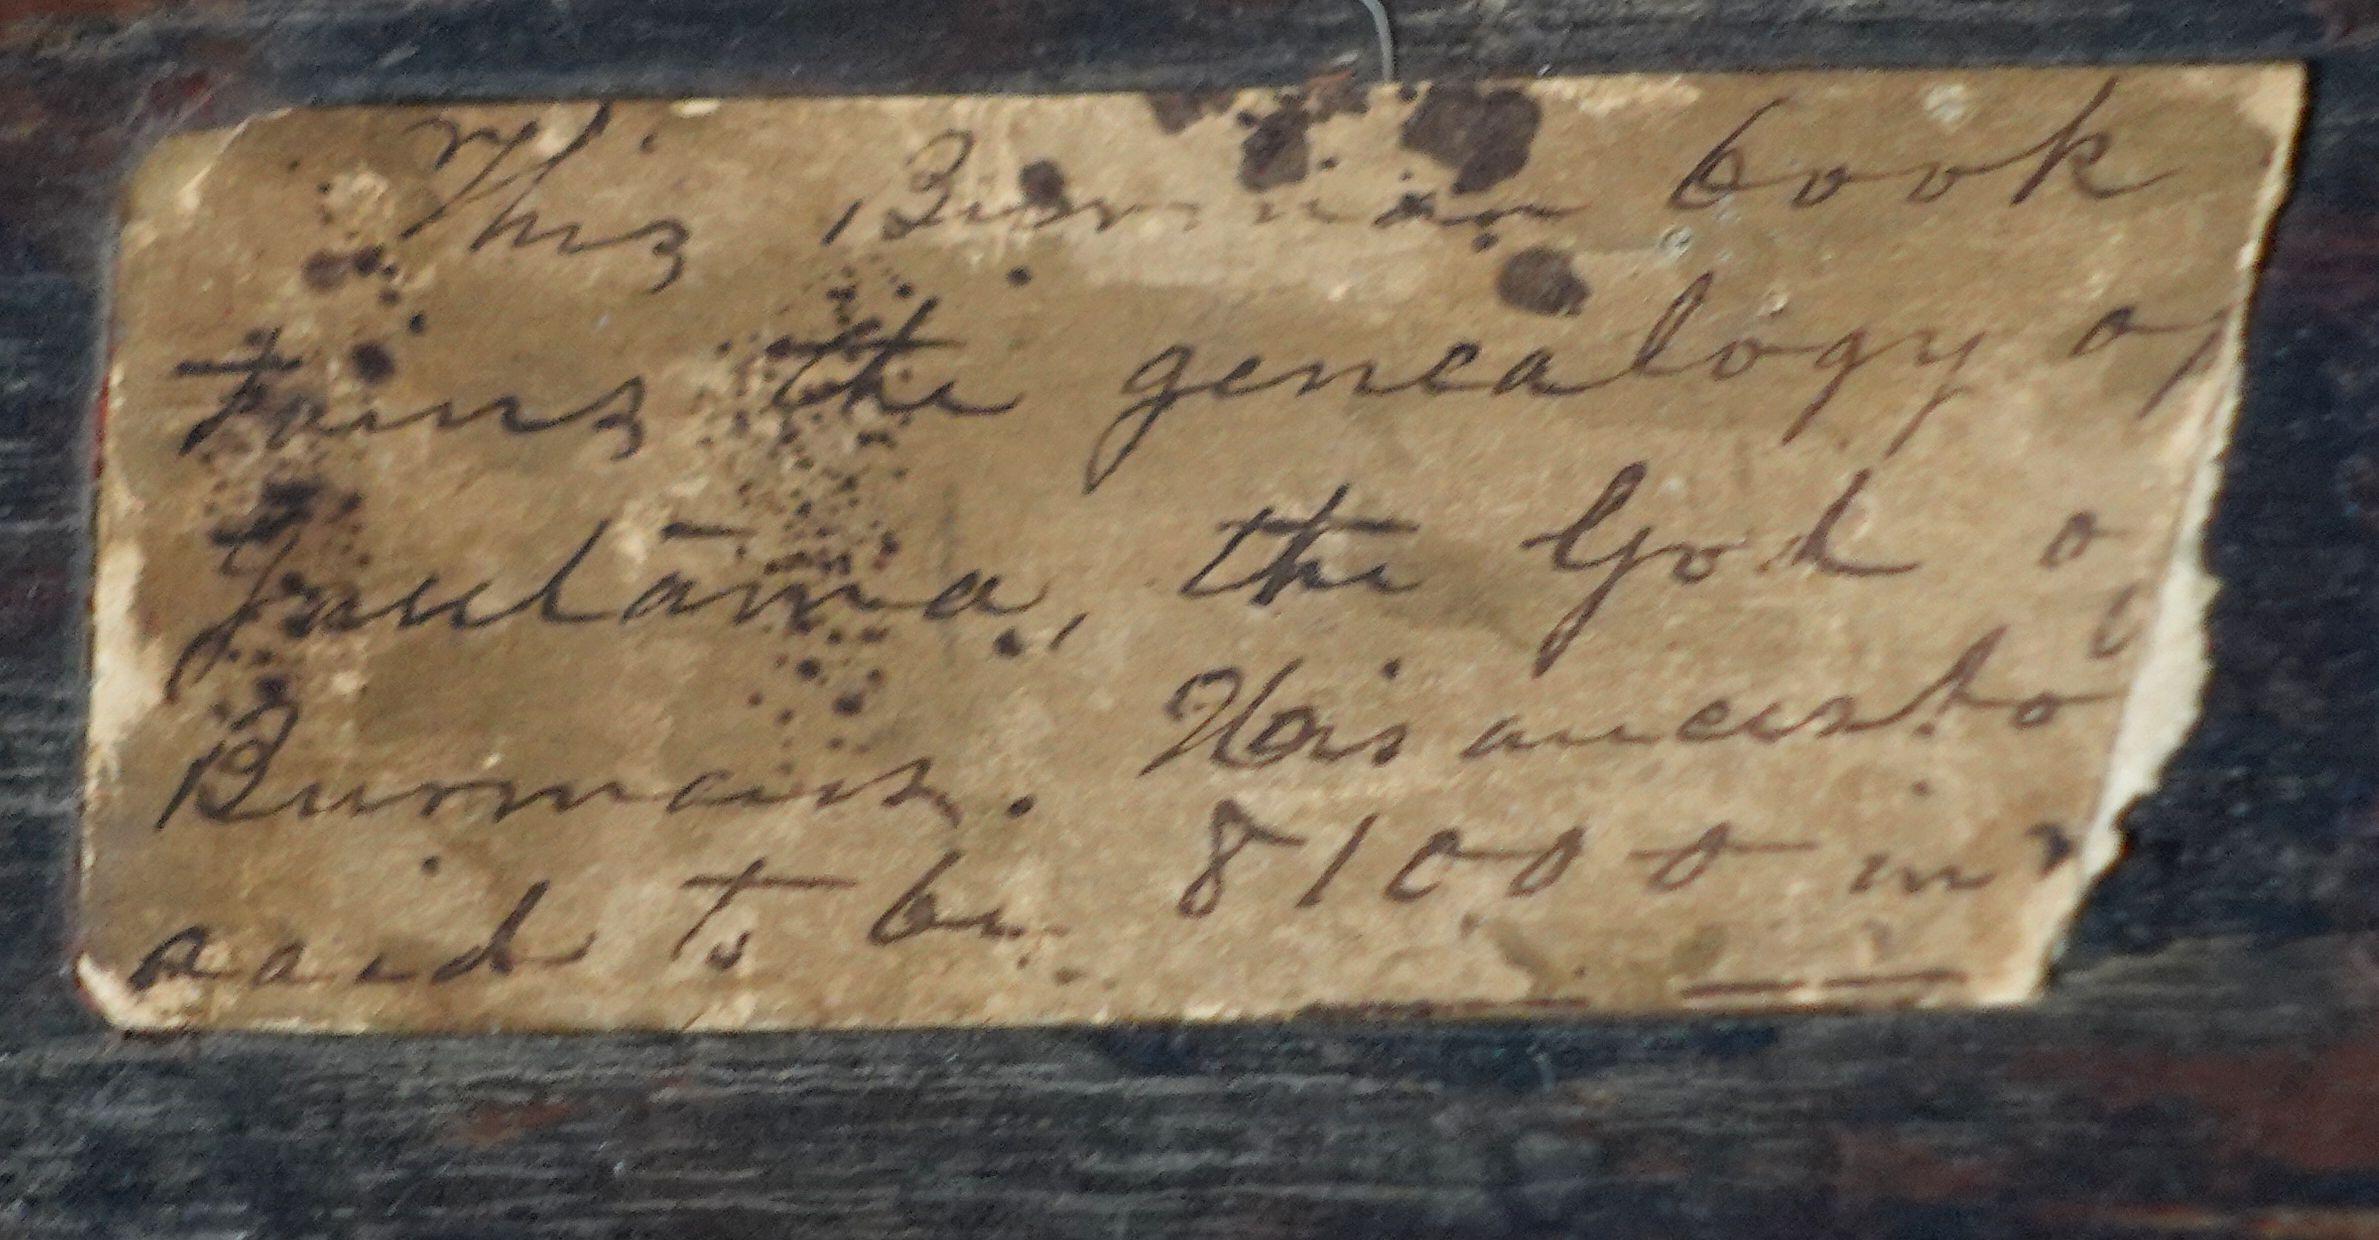 This Burman book
tains the genealogy of
Gautama, the God o
Burmans. His ancesto
said to be 81000 in